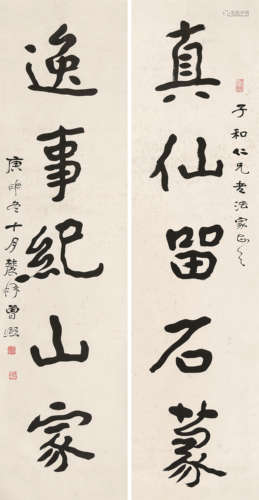 子和仁兄老法家正之
真仙留石篆
逸事紀山家
庚申冬十月農髯曾熙